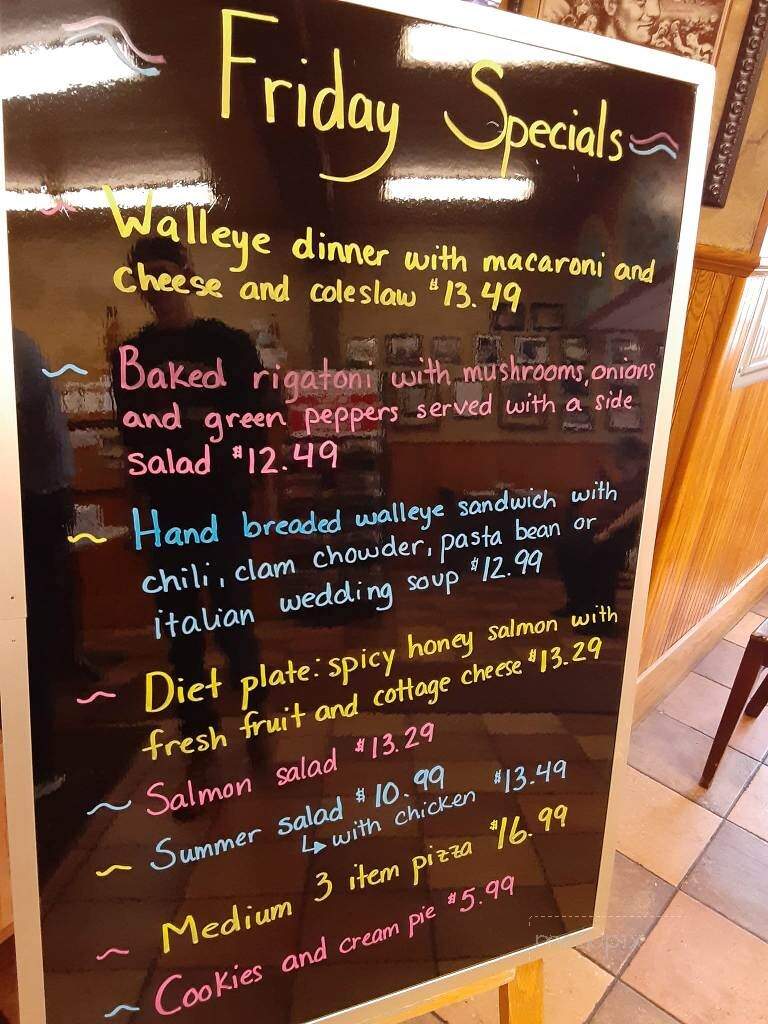 Friday Specials
Walleye dinner with macaroni and
cheese and coleslaw $13.49
Baked rigatoni with mushrooms, onions
and green peppers served with a side
salad $12.49
Hand breaded walleye sandwich with
chili, clam chowder, pasta bean or
italian wedding soup $12.99
Diet plate: spicy honey salmon with
fresh fruit and cottage cheese $13.29
Salmon salad $13.29
Summer salad $10.99
↳ with chicken $13.49
Medium 3 item pizza $16.99
Cookies and cream pie $5.99